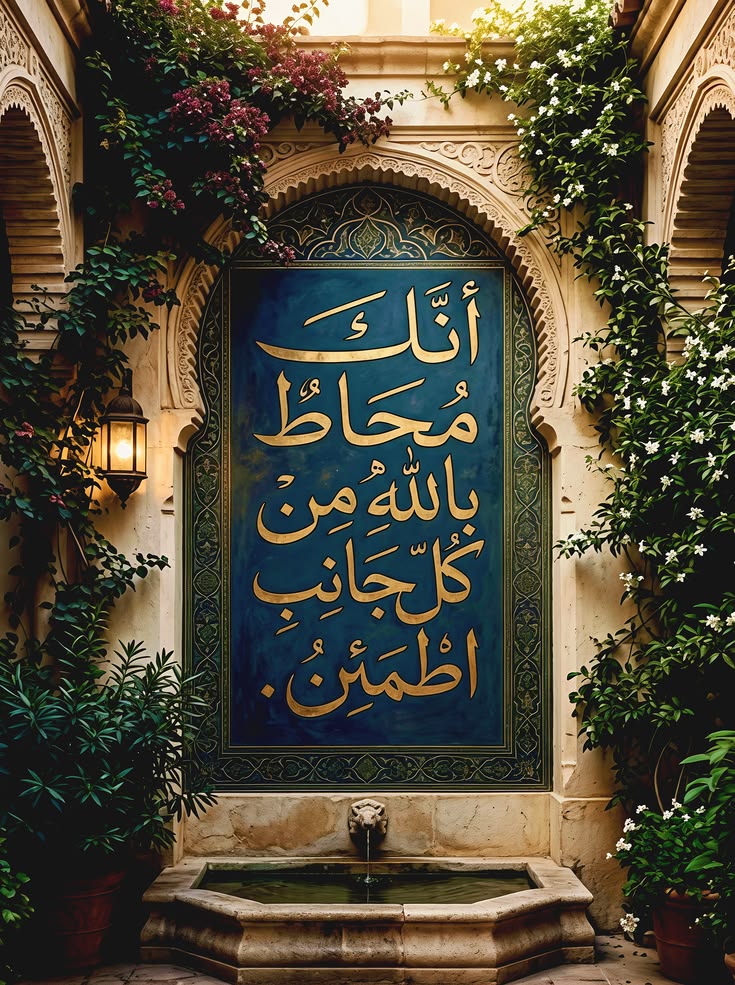 أنَّك
مُحَاطٌ
بالله مِن
كلِّ جَانِبٍ
اطْمَئِنُ.